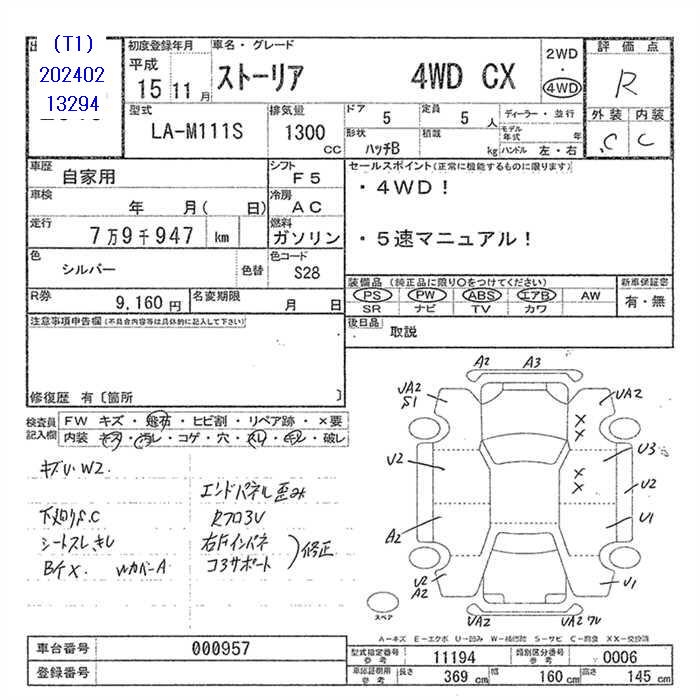 (T1)
202402
13294
初度登録年月
平成
15 11 月
車名・グレード
ストーリア 4WD CX
2WD
・
4WD
評価点
R
外装 内装
C C
型式
LA-M111S
排気量
1300
CC
ドア
5
定員
5 人
形状
ハッチB
積載
kg
ディーラー・並行
モデル年式 年
ハンドル 左・右
車歴
自家用
シフト
F5
車検
年 月( 日)
冷房
AC
走行
7万9千947 km
燃料
ガソリン
色
シルバー
色替
色コード
S28
R券
9,160 円
名変期限
月 日
セールスポイント(正常に機能するものに限ります)
・4WD!
・5速マニュアル!
装備品 (純正品に限り○をつけてください)
PS PW ABS エアB AW
SR ナビ TV カワ
新車保証書
有・無
後日品
取説
注意事項申告欄(不具合内容等は具体的に記入して下さい)
修復歴 有〔箇所 〕
検査員
記入欄
FW キズ・飛石・ヒビ割・リペア跡・×要
内装 キズ・汚レ・コゲ・穴・スレ・キレ・破レ
キズU W2
下廻りS.C
シートスレ、キレ
エンドパネル歪み
Rフロ3V
右Fインパネ
コ3サポート
修正
A2 A3
UA2
S1
UA2
U2
U3
U2
A2
U1
U2
A2
U1
UA2
UA2
スペア
A-キズ E-エクボ U-凹み W-補修跡 S-サビ C-腐食 XX-交換済
車台番号
000957
登録番号
型式指定番号
参考
11194
類別区分番号
参考
0006
車認証時用
参考
長さ
369 cm
幅
160 cm
高さ
145 cm